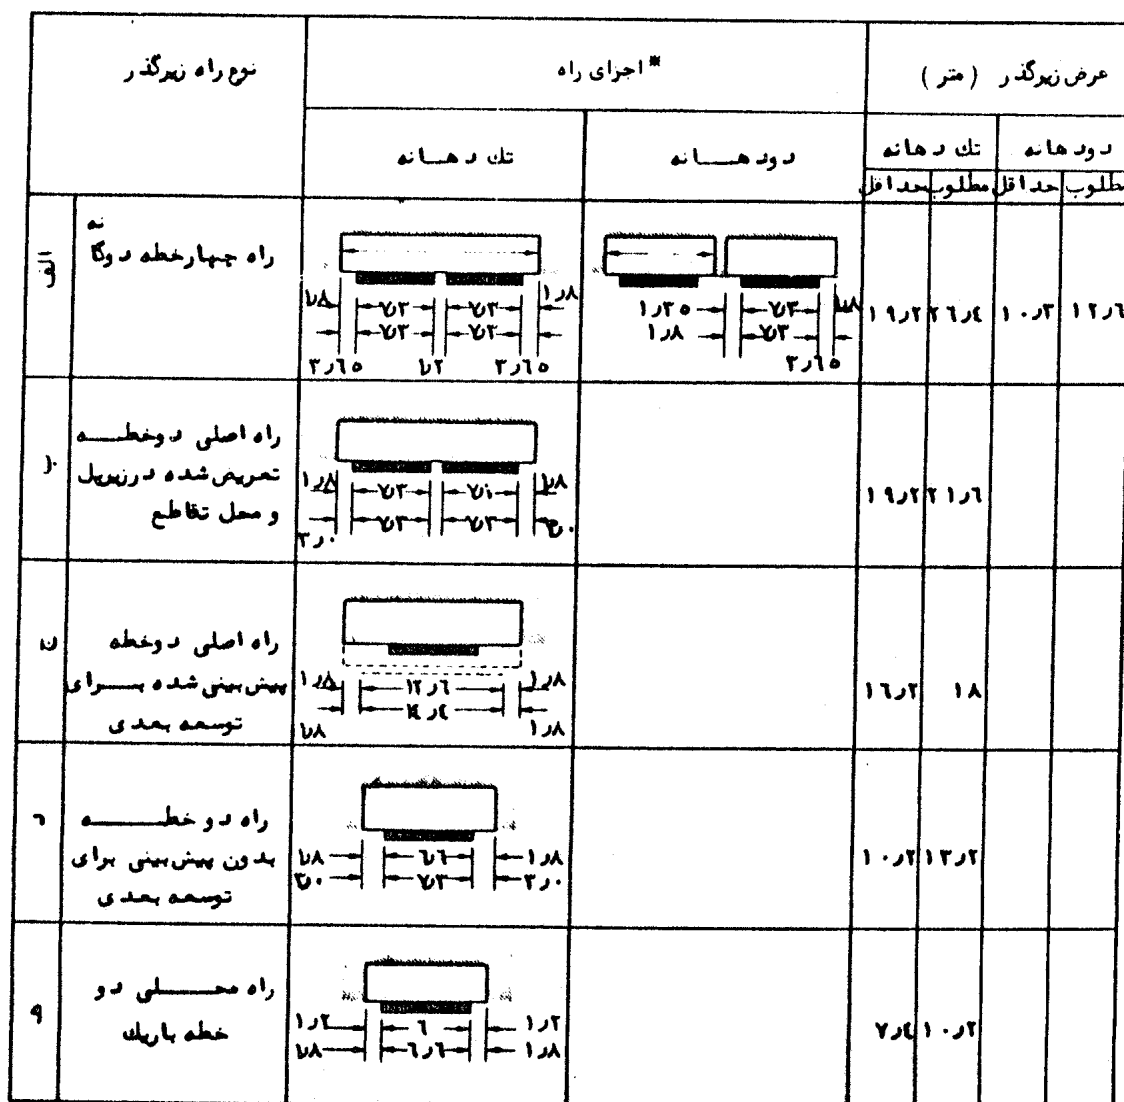 نوع راه زیرگذر
* اجزای راه
عرض زیرگذر (متر)
تك دهانه
دودهانه
تك دهانه
دودهانه
حداقل
مطلوب
حداقل
مطلوب
الف
راه چهارخطه دوگانه
۱٫۸ ۷٫۳ ۷٫۳ ۱٫۸
۷٫۳ ۷٫۳
۳٫٦٥ ۱٫۲ ۳٫٦٥
۱٫۳٥ ۷٫۳ ۱٫۸
۱٫۸ ۷٫۳
۳٫٦٥
۱۹٫۲
۲٦٫٤
۱۰٫۳
۱۲٫٦
ب
راه اصلی دوخطه
تعریض شده درزیرپل
و محل تقاطع
۱٫۸ ۷٫۳ ۷٫۱ ۱٫۸
۷٫۳ ۷٫۳
۳٫۰ ۳٫۰
۱۹٫۲
۲۱٫٦
ج
راه اصلی دوخطه
پیش بینی شده برای
توسعه بعدی
۱٫۸ ۱۲٫٦ ۱٫۸
۱٤٫٤
۱٫۸ ۱٫۸
۱٦٫۲
۱۸
د
راه دو خطه
بدون پیش بینی برای
توسعه بعدی
۱٫۸ ٦٫٦ ۱٫۸
۳٫۰ ۷٫۳ ۳٫۰
۱۰٫۲
۱۳٫۲
ه
راه محلی دو
خطه باریك
۱٫۲ ٦ ۱٫۲
۱٫۸ ٦٫٦ ۱٫۸
۷٫٤
۱۰٫۲